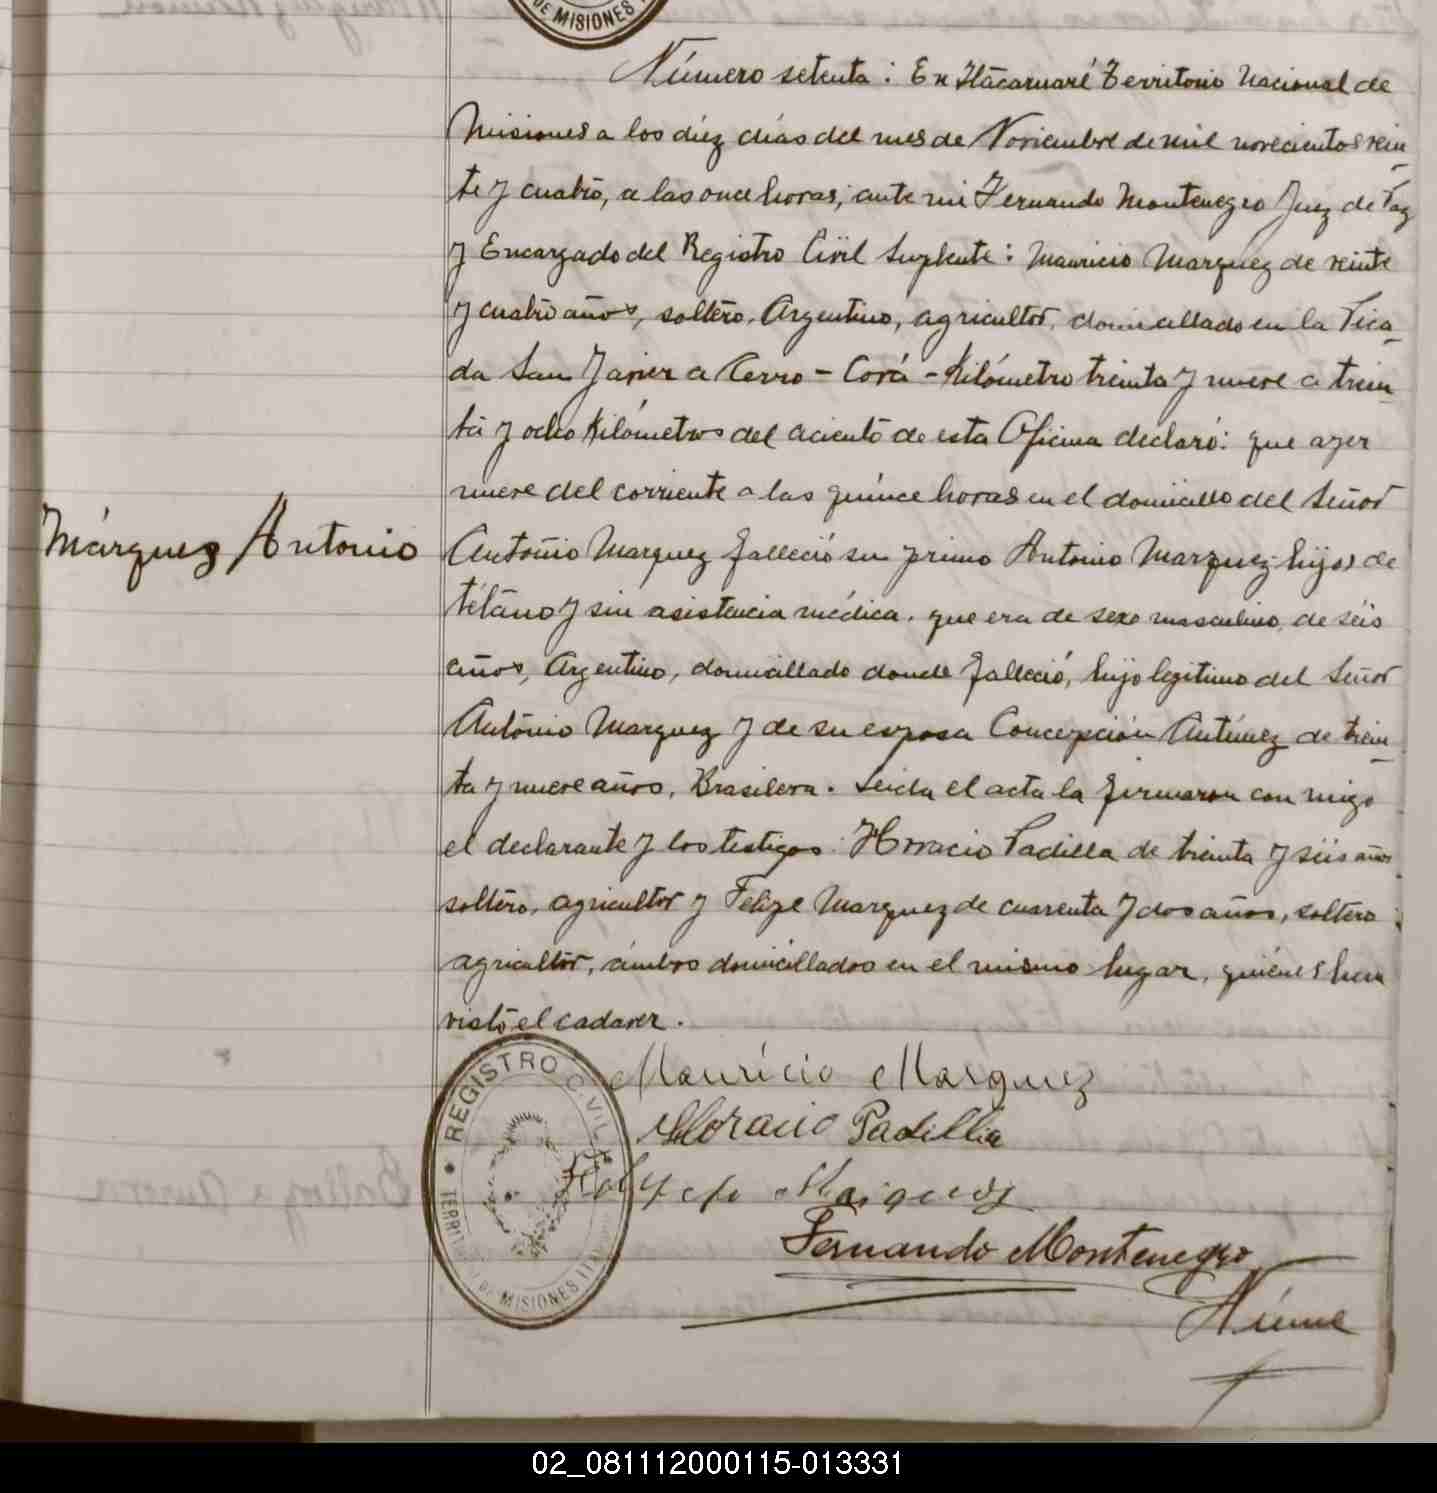 DE MISIONES
Número setenta: En Itacaruaré Territorio Nacional de
Misiones a los diéz días del mes de Noviembre de mil novecientos vein_
te y cuatro, a las once horas, ante mi Fernando Montenegro Juez de Paz
y Encargado del Registro Civil Suplente: Mauricio Marquez de veinte
y cuatro años, soltero, Argentino, agricultor, domicillado en la Pica_
da San Javier a Cerro-Corá-Kilómetro treinta y nueve a trein_
ta y ocho Kilómetros del aciento de esta Oficina declaró: que ayer
nueve del corriente a las quince horas en el domicilio del Señor
Márquez Antonio
Antonio Marquez falleció su primo Antonio Marquez hijos de
tétano y sin asistencia médica. que era de sexo masculino, de séis
años, Argentino, domicillado donde falleció, hijo legitimo del Señor
Antonio Marquez y de su esposa Concepción Antúnez de trein_
ta y nueve años, Brasilera. Leida el acta la firmaron con migo
el declarante y los testigos Horacio Padilla de treinta y séis años
soltero, agricultor y Felipe Marquez de cuarenta y dos años, soltero
agricultor, ámbos domicillados en el mismo lugar, quiénes han
visto el cadaver.
Mauricio Marquez
Horacio Padillia
Marquez
Fernando Montenegro
REGISTRO CIVIL
MISIONES
02_081112000115-013331